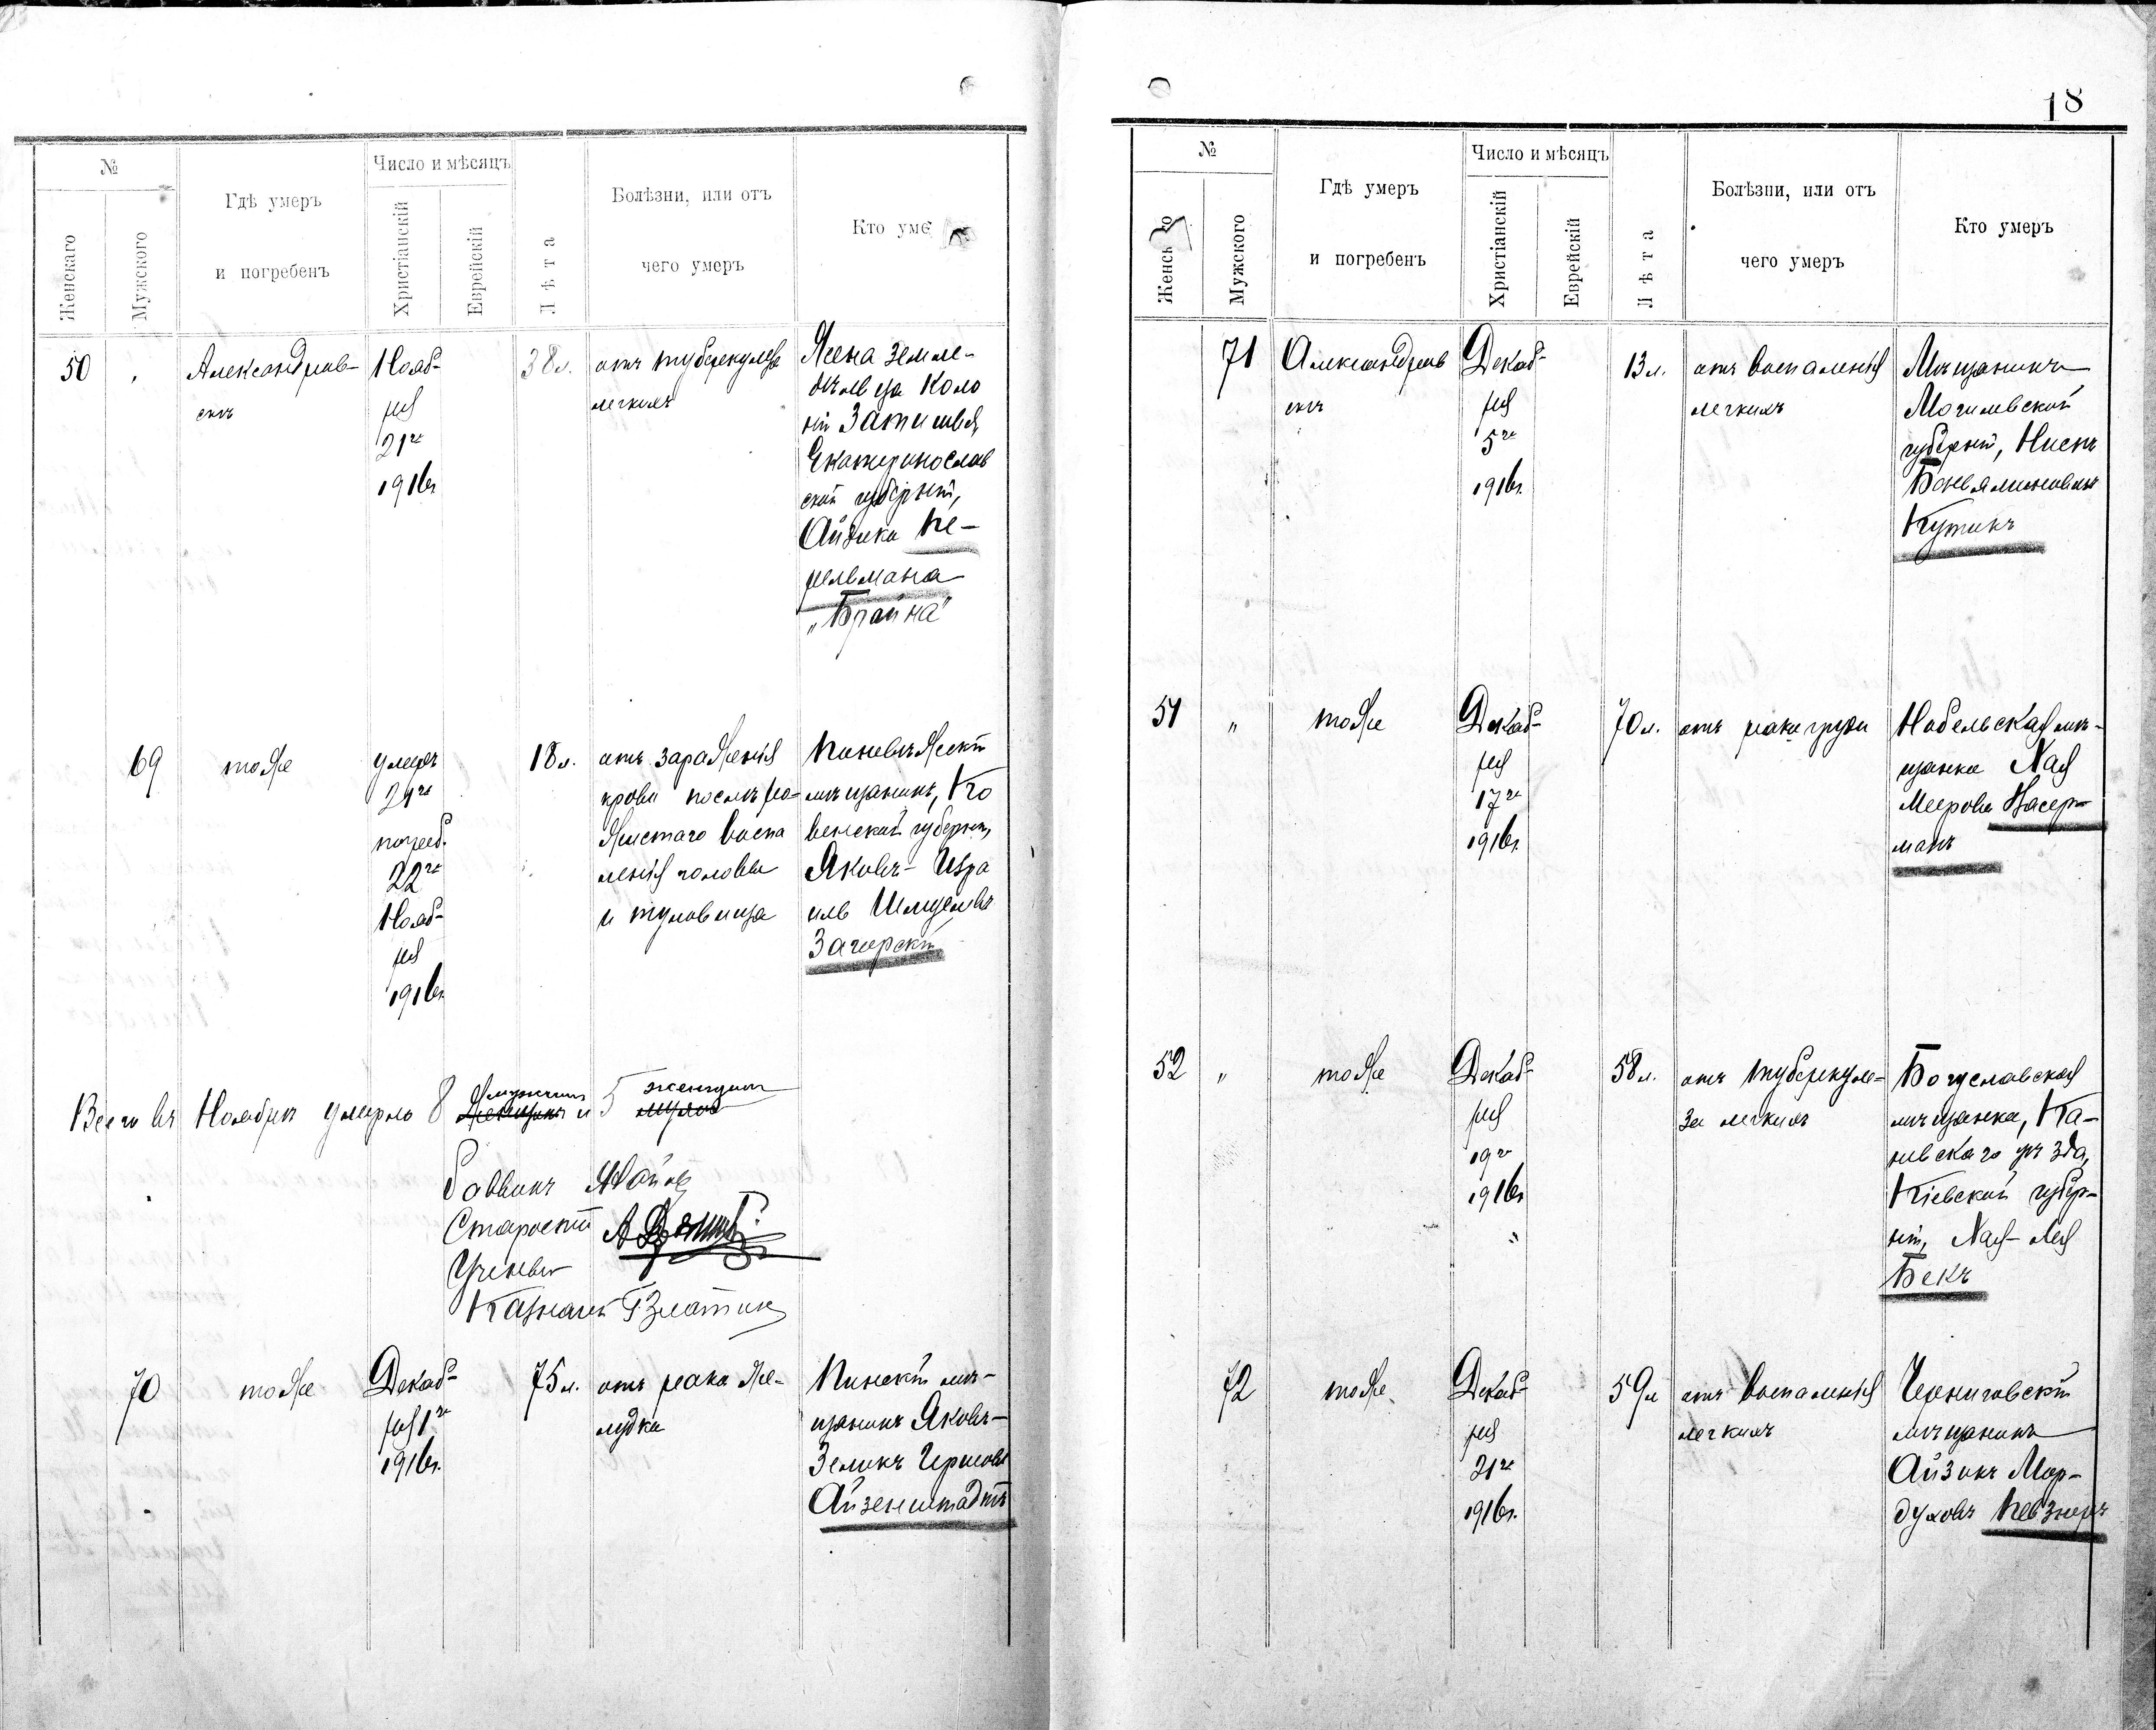 18
№
Число и мѣсяцъ
Женскаго
Мужского
Гдѣ умеръ
и погребенъ
Христіанскій
Еврейскій
Лѣта
Болѣзни, или отъ
чего умеръ
Кто уме
50
Александров-
скъ
Нояб-
ря
21го
1916г.
38л.
отъ туберкулеза
легкихъ
Жена земле-
дѣльца коло
ніи Затишья,
Екатеринослав
ской губерніи,
Айзика Пе-
рельмана
„Брайна"
69
тоже
умеръ
21го
погреб.
22го
Нояб-
ря
1916г.
18л.
отъ зараженія
крови послѣ ро-
жистаго воспа
ленія головы
и туловища
Поневѣжскій
мѣщанинъ, Ко
венской губерніи,
Яковъ-Изра
иль Шмуелевъ
Загорскій
Всего въ Ноябрѣ умерло 8 мужчинъ и 5 женщинъ
Раввинъ
Староста
Ученый
Казначей Г Златкин
70
тоже
Декаб-
ря 1го
1916г.
75л.
отъ рака же-
лудка
Пинскій мѣ-
щанинъ Яковъ-
Зеликъ Гершовъ
Айзенштадтъ
№
Число и мѣсяцъ
Мужского
Гдѣ умеръ
и погребенъ
Христіанскій
Еврейскій
Лѣта
Болѣзни, или отъ
чего умеръ
Кто умеръ
71
Александров
скъ
Декаб-
ря
5го
1916г.
13л.
отъ воспаленія
легкихъ
Мѣщанинъ
Могилевской
губерніи, Нисенъ
Беньяминовичъ
Кутикъ
51
"
тоже
Декаб-
ря
17го
1916г.
70л.
отъ рака груди
Нобельская мѣ-
щанка Хая
Меерова Васер-
манъ
52
"
тоже
Декаб-
ря
19го
1916г.
58л.
отъ туберкуле-
за легкихъ
Богуславская
мѣщанка, Ка-
невскаго уѣзда,
Кіевской губер-
ніи, Хая-Лея
Бекъ
72
тоже
Декаб-
ря
21го
1916г.
59л
отъ воспаленія
легкихъ
Черниговскій
мѣщанинъ
Айзикъ Мор-
духовъ Певзнеръ